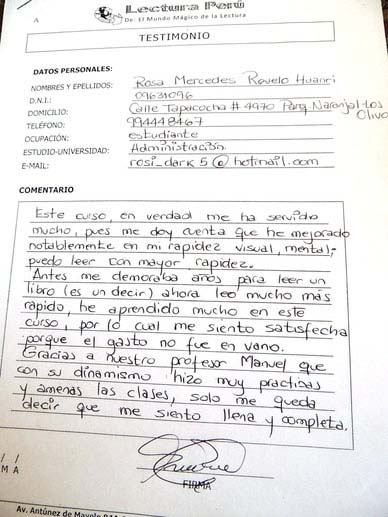 Lectura Perú
De: El Mundo Mágico de la Lectura
A
TESTIMONIO
DATOS PERSONALES:
NOMBRES Y EPELLIDOS: Rosa Mercedes Ravelo Huanri
D.N.I.: 09631096
DOMICILIO: Calle Tapacocha # 4970 Parq Naranjal-Los Olivo
TELÉFONO: 994448467
OCUPACIÓN: estudiante
ESTUDIO-UNIVERSIDAD: Administración
E-MAIL: rosi_dark5@hotmail.com
COMENTARIO
Este curso, en verdad me ha servido
mucho, pues me doy cuenta que he mejorado
notablemente en mi rapidez visual, mental;
puedo leer con mayor rapidez.
Antes me demoraba años para leer un
libro (es un decir) ahora leo mucho más
rapido, he aprendido mucho en este
curso, por lo cual me siento satisfecha
porque el gasto no fue en vano.
Gracias a nuestro profesor Manuel que
con su dinamismo hizo muy practicas
y amenas las clases, solo me queda
decir que me siento llena y completa.
/ /
M A
FIRMA
Av. Antúnez de Mayolo